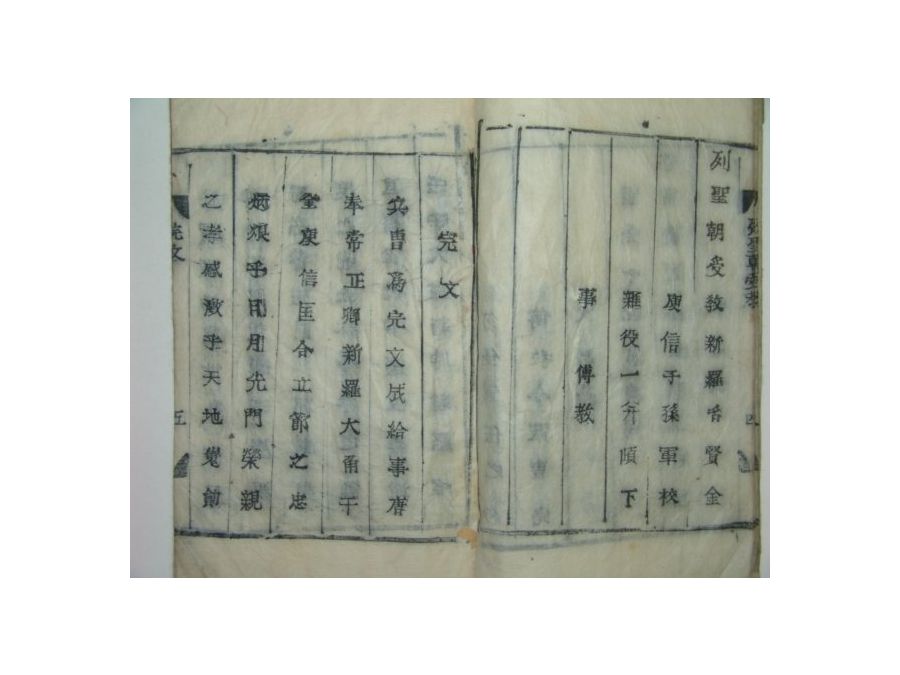 列聖朝受敎新羅名賢金
庾信子孫軍校
雜役一弁頉下
事 傳敎
完文
兵曹爲完文成給事唐
奉常正卿新羅大角干
金庾信匡合立節之忠
炳煥乎日月光門榮親
之孝感激乎天地覓節
完文
五
四